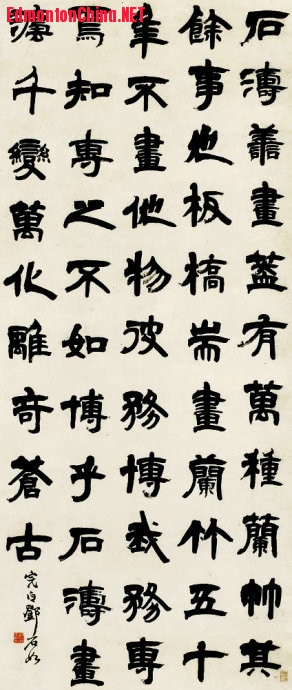 EdmontonChina.NET
石濤善畫蓋有萬種蘭竹其
餘事也板橋耑畫蘭竹五十
年不畫他物彼務博我務專
焉知專之不如博乎石濤畫
灋千變萬化離奇蒼古
完白鄧石如